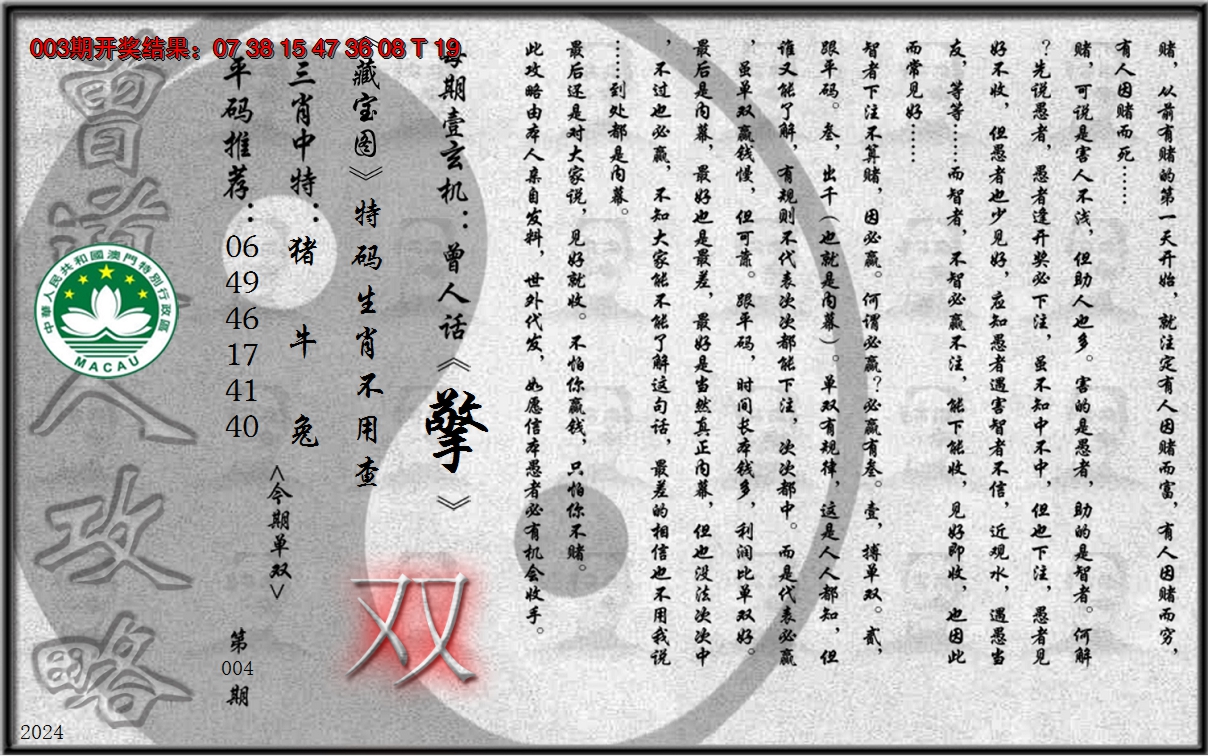 003期开奖结果：07 38 15 47 36 08 T 19
赌，从前有赌的第一天开始，就注定有人因赌而富，有人因赌而穷，
有人因赌而死……
赌，可说是害人不浅，但助人也多。害的是愚者，助的是智者。何解
？先说愚者，愚者逢开奖必下注，虽不知中不中，但也下注，愚者见
好不收，但愚者也少见好，应知愚者遇害智者不信，近观水，遇愚当
友，等等……而智者，不智必赢不注，能下能收，见好即收，也因此
而常见好……
智者下注不算赌，因必赢。何谓必赢？必赢有叁。壹，搏单双。贰，
跟平码。叁，出千（也就是内幕）。单双有规律，这是人人都知，但
谁又能了解，有规则不代表次次都能下注，次次都中。而是代表必赢
，虽单双赢钱慢，但可靠。跟平码，时间长本钱多，利润比单双好。
最后是内幕，最好也是最差，最好是当然真正内幕，但也没法次次中
，不过也必赢，不知大家能不能了解这句话，最差的相信也不用我说
……到处都是内幕。
最后还是对大家说，见好就收。不怕你赢钱，只怕你不赌。
此攻略由本人亲自发料，世外代发，如愿信本愚者必有机会收手。
每期壹玄机：曾人话《擎》
《藏宝图》特码生肖不用查
双
三肖中特：猪 牛 兔
<今期单双>
平码推荐：06 49 46 17 41 40
第004期
曾道人攻略
中華人民共和國澳門特別行政區
MACAU
2024